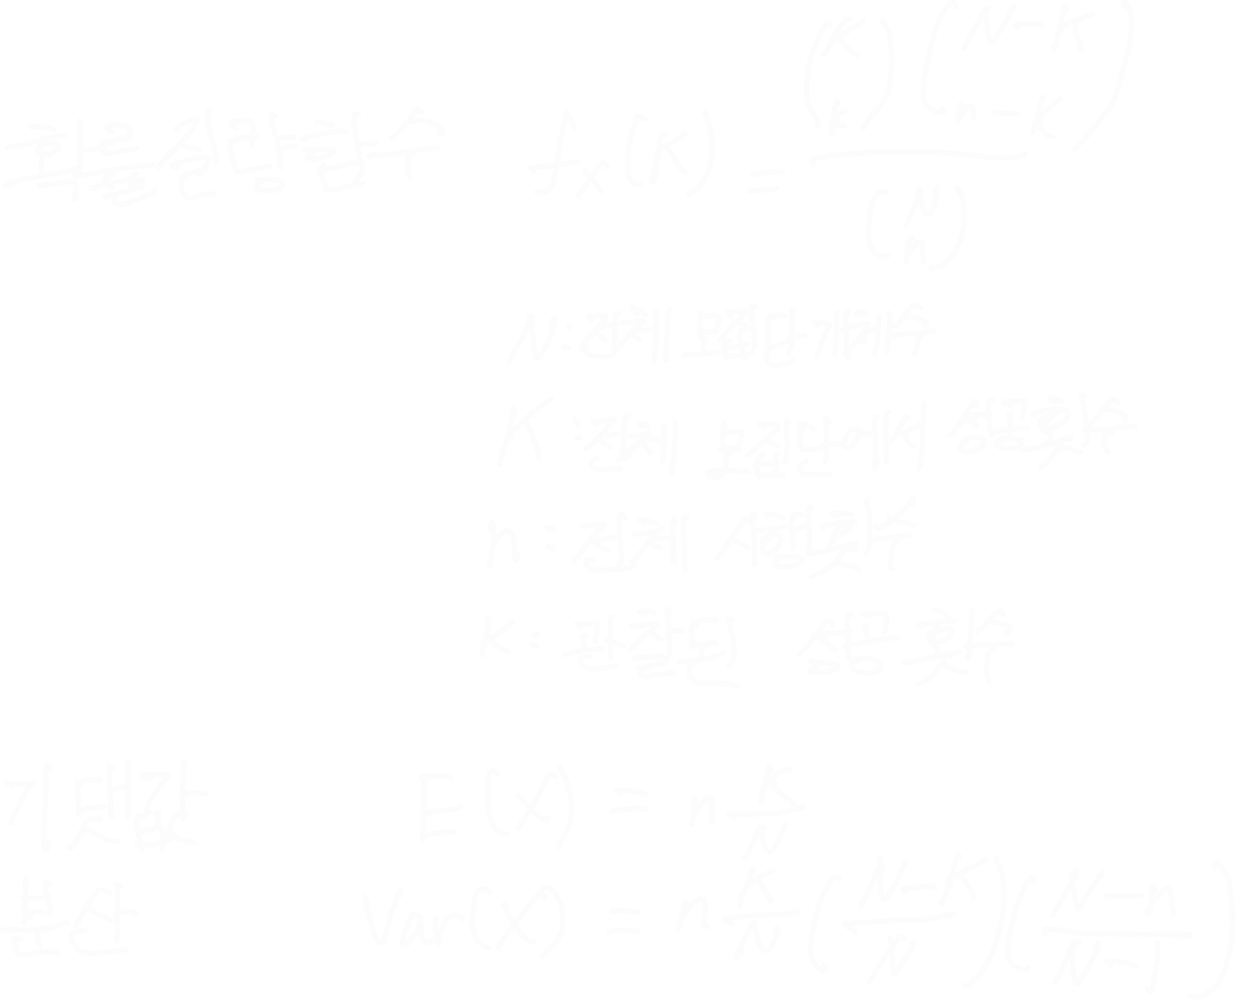 확률질량함수 fx(K) = (K k)(N-K n-K) / (N n)
N:전체 모집단개체수
K:전체 모집단에서 성공횟수
n:전체 시행횟수
K: 관찰된 성공횟수
기댓값 E(X) = n K/N
분산 Var(X) = n K/N ((N-K)/N)((N-n)/(N-1))